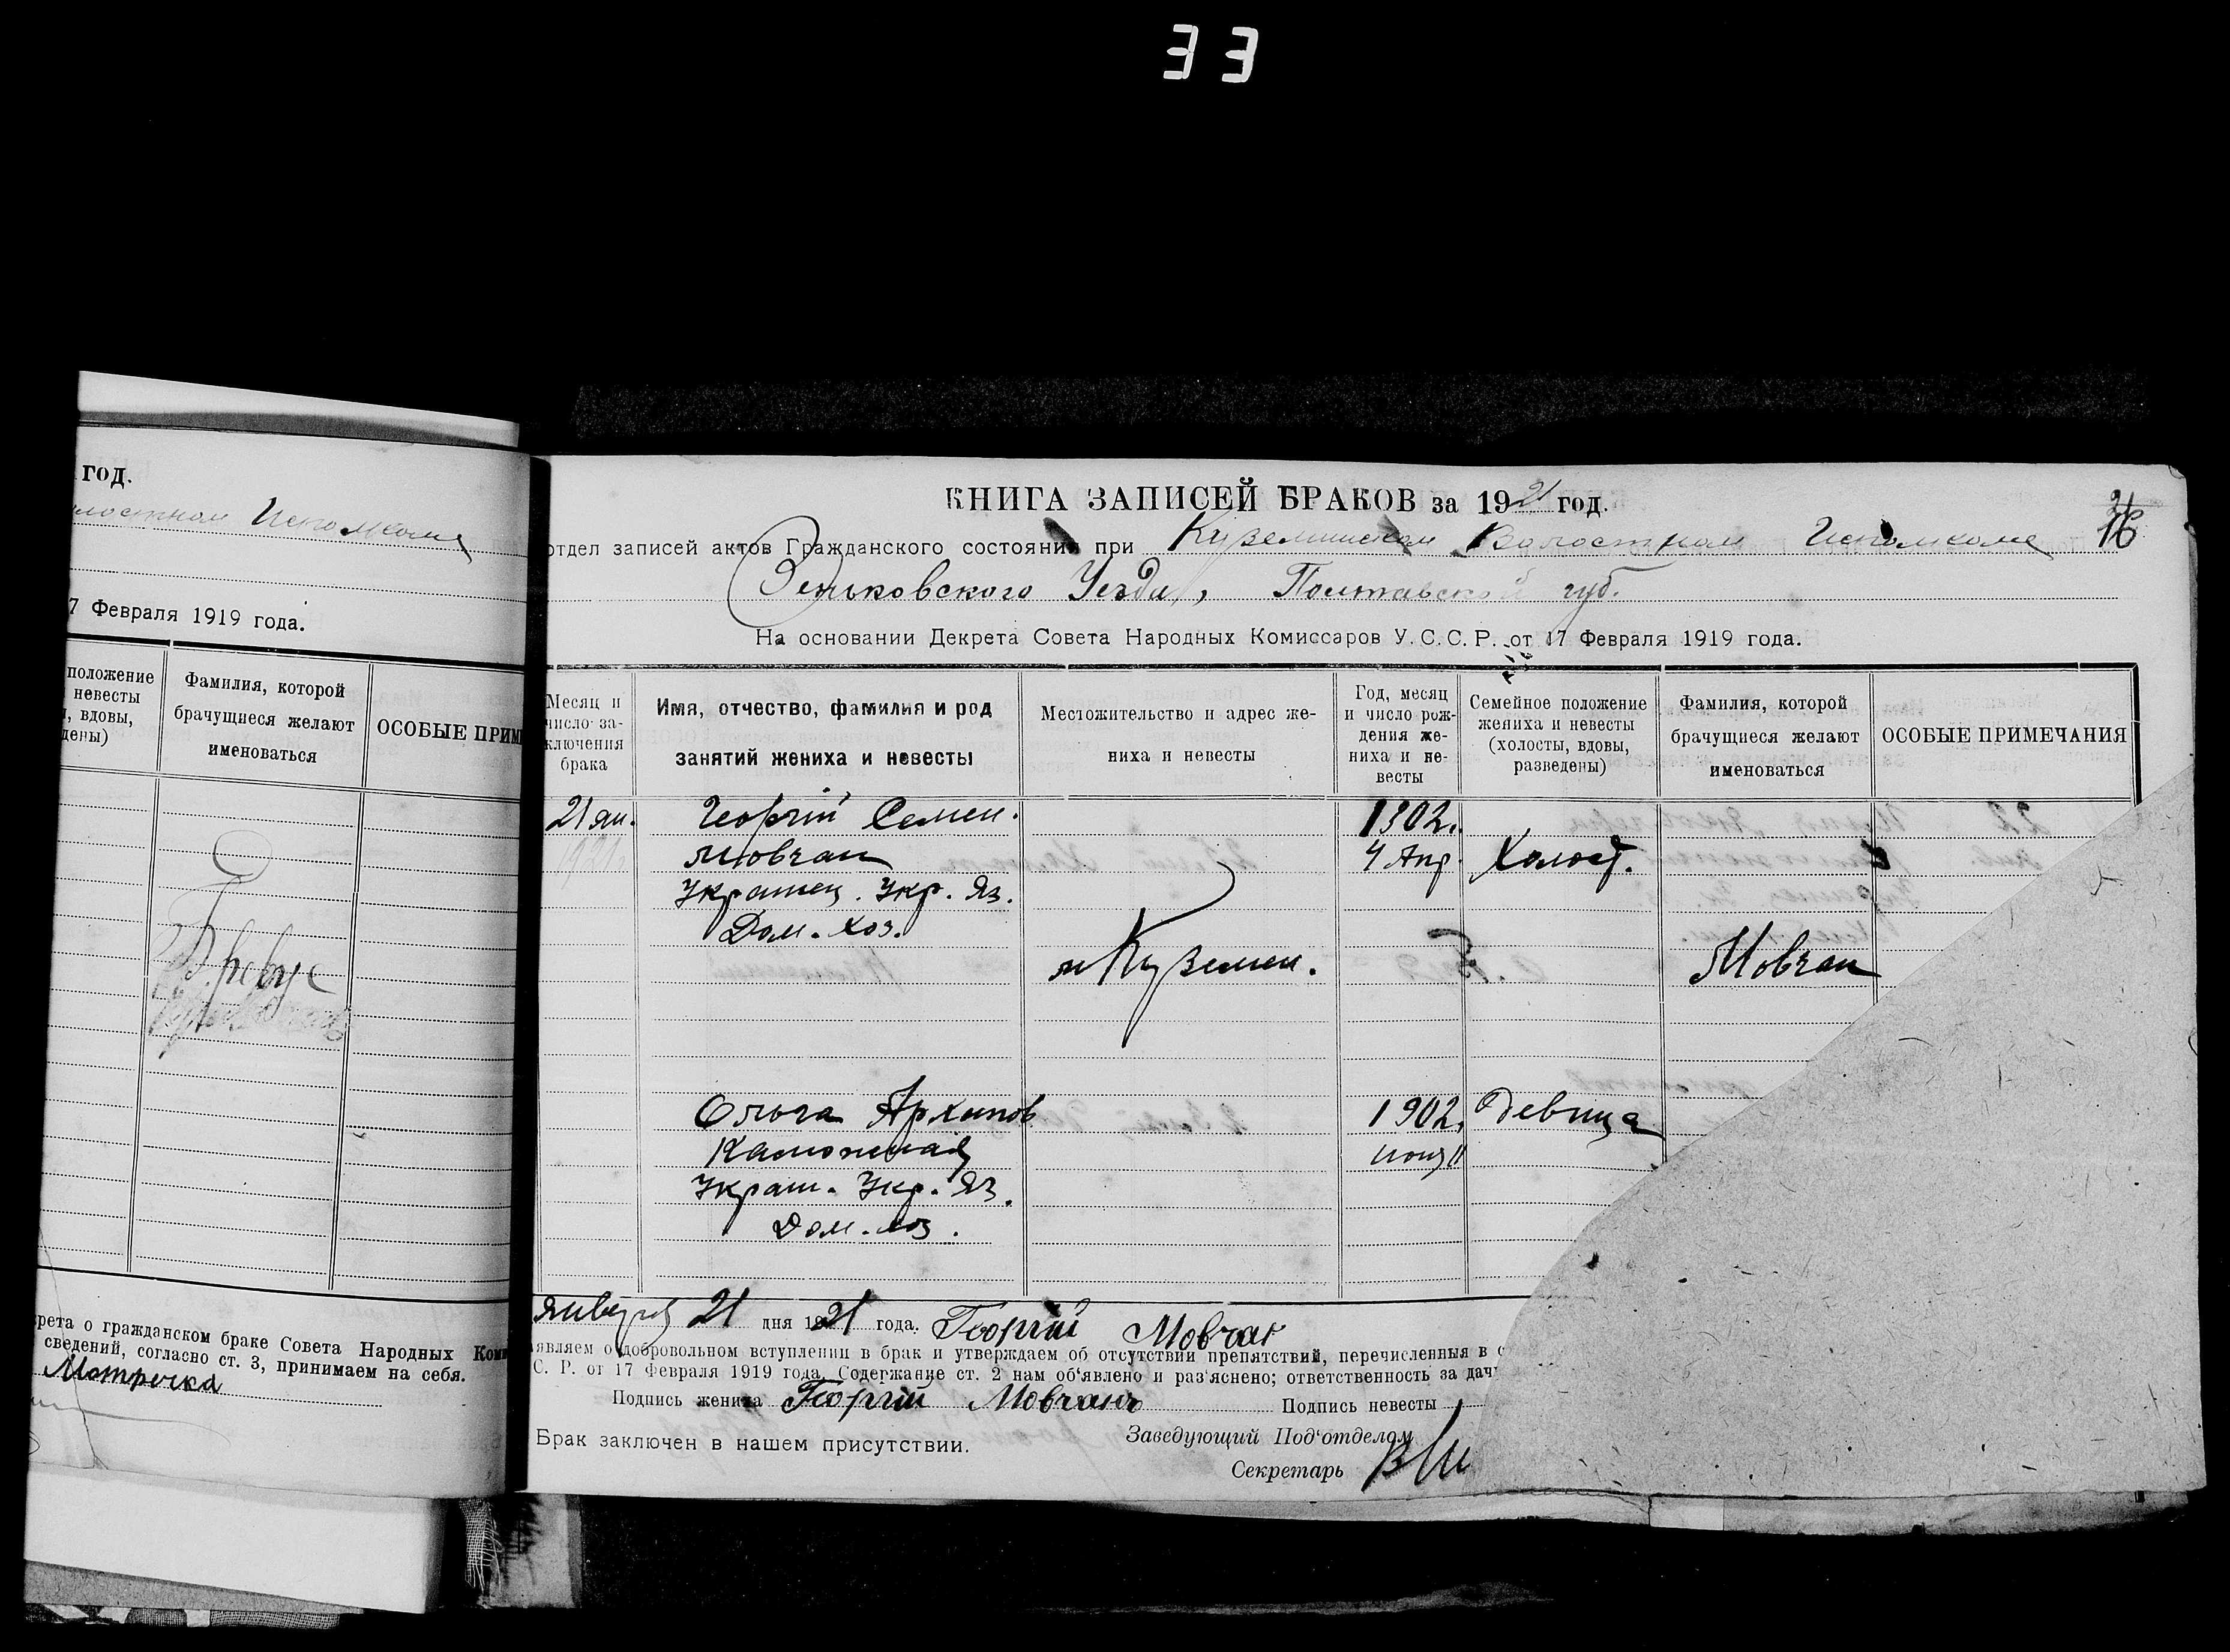 33
год.
Исполкоме
7 Февраля 1919 года.
положение
невесты
, вдовы,
дены)
Фамилия, которой
брачущиеся желают
именоваться
ОСОБЫЕ ПРИМ
рета о гражданском браке Совета Народных Ком
сведений, согласно ст. 3, принимаем на себя.
КНИГА ЗАПИСЕЙ БРАКОВ за 1921 год.
21
16
отдел записей актов Гражданского состояния при Куземинском Волостном Исполкоме
Зеньковского Уезда, Полтавской губ.
На основании Декрета Совета Народных Комиссаров У.С.С.Р. от 17 Февраля 1919 года.
Месяц и
число за-
ключения
брака
Имя, отчество, фамилия и род
занятий жениха и невесты
Местожительство и адрес же-
ниха и невесты
Год, месяц
и число рож-
дения же-
ниха и не-
весты
Семейное положение
жениха и невесты
(холосты, вдовы,
разведены)
Фамилия, которой
брачущиеся желают
именоваться
ОСОБЫЕ ПРИМЕЧАНИЯ
21 ян. Георгій Семен. 1902.
1921. Мовчан 4 Апр. Холост.
Украинец. Укр. Яз.
Дом. Хоз.
м Куземен. Мовчан
Ольга Архипов 1902. Девица
11
Украин. Укр. Яз.
Дом. хоз.
января 21 дня 1921 года. Георгій Мовчан
являем о добровольном вступлении в брак и утверждаем об отсутствии препятствий, перечисленныя в с
С. Р. от 17 Февраля 1919 года. Содержание ст. 2 нам об'явлено и раз'яснено; ответственность за дач
Подпись жениха Георгій Мовчанъ Подпись невесты
Брак заключен в нашем присутствии. Заведующий Под'отделом
Секретарь